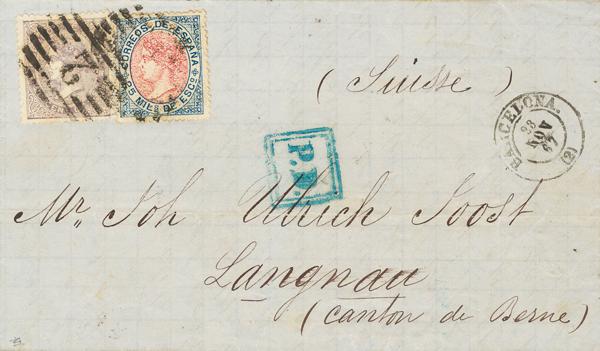 2
CORREOS DE ESPAÑA
25 MILS DE ESCO
(Suisse)
BARCELONA.
28
NOV
67
(2)
P.D.
Mr. Joh Ulrich Joost
Langnau
(canton de Berne)